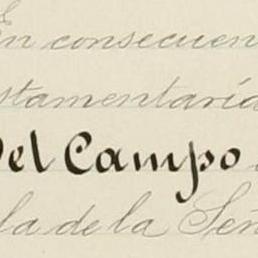 En consecuen
stamentaría
Del Campo
la de la Señ